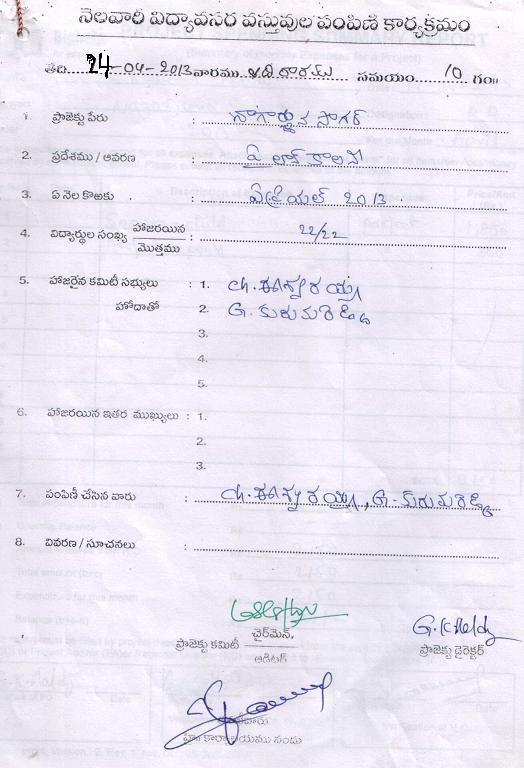 నెలవారీ విద్యావసర వస్తువుల పంపిణి కార్యక్రమం
తేది 24-04-2013 వారము సమయం 10 గం॥
1. ప్రాజెక్టు పేరు : నాగార్జున సాగర్
2. ప్రదేశము / ఆవరణ : ఏ లాక్ కాలని
3. ఏ నెల కొఱకు : ఏప్రియల్ 2013.
4. విద్యార్థుల సంఖ్య హాజరయిన / మొత్తము : 22/22
5. హాజరైన కమిటీ సభ్యులు : 1. ch. ఈశ్వరయ్య
హోదాతో 2. G. కురుమరెడ్డి
3.
4.
5.
6. హాజరయిన ఇతర ముఖ్యులు : 1.
2.
3.
7. పంపిణీ చేసిన వారు : ch. ఈశ్వరయ్య, G. కురుమరెడ్డి
8. వివరణ / సూచనలు :
ప్రాజెక్టు కమిటీ ఛైర్‌మెన్, / ఆడిటర్
G.K Reddy
ప్రాజెక్టు డైరెక్టర్